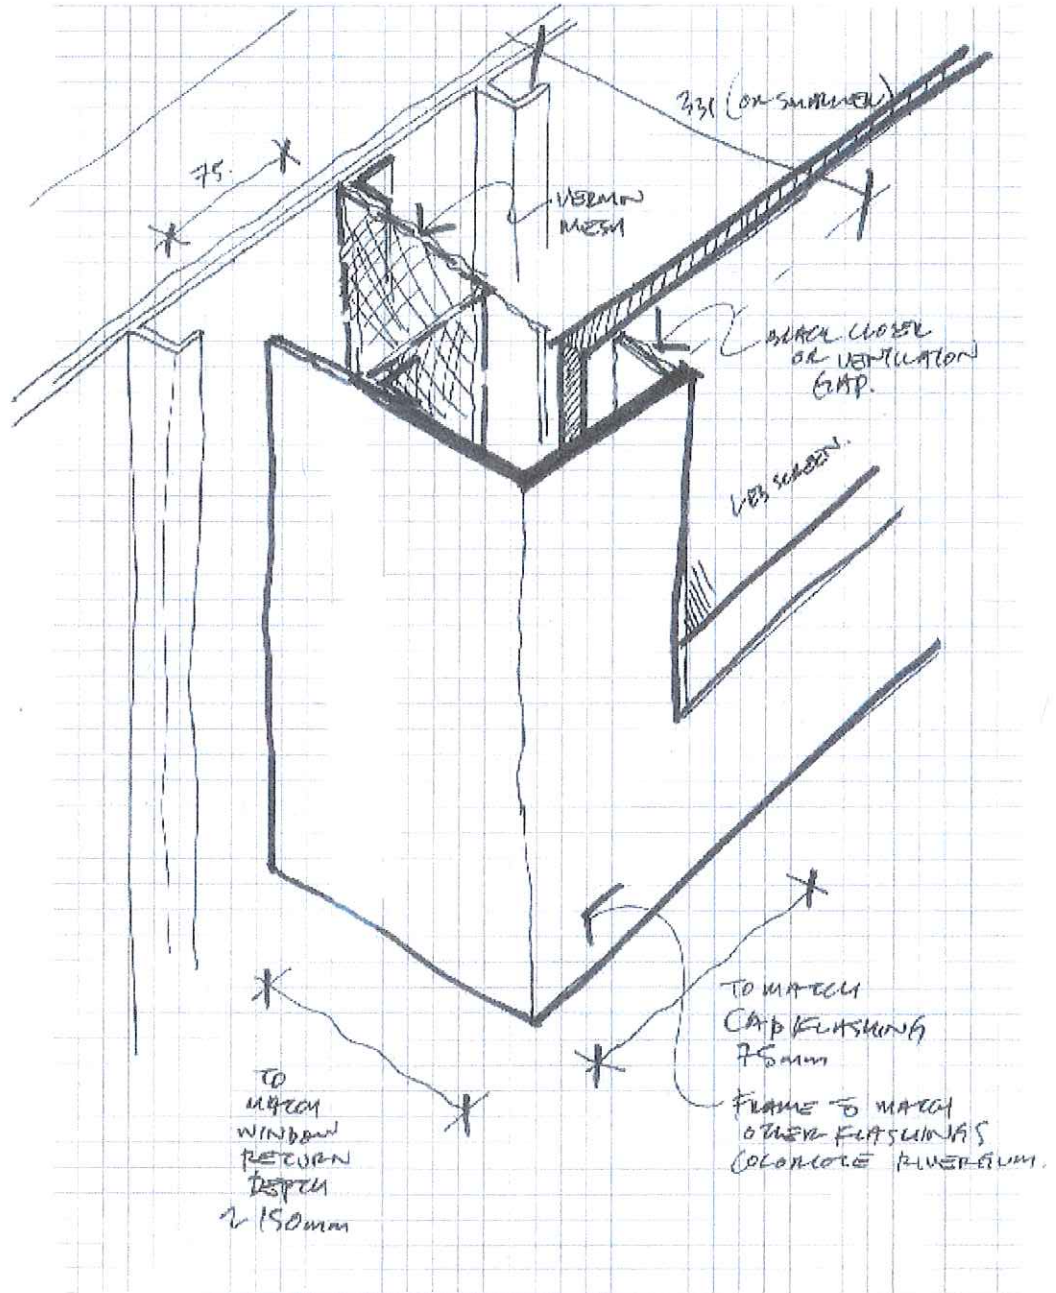 331 (OR SMALLER)
75.
VERMIN
MESH
BLACK CLOSER
OR VENTILATION
GAP.
LED SCREEN.
TO MATCH
CAP FLASHING
75mm
FRAME TO MATCH
OTHER FLASHINGS
COLORCOTE RIVERGUM.
TO
MATCH
WINDOW
RETURN
DEPTH
~ 150mm